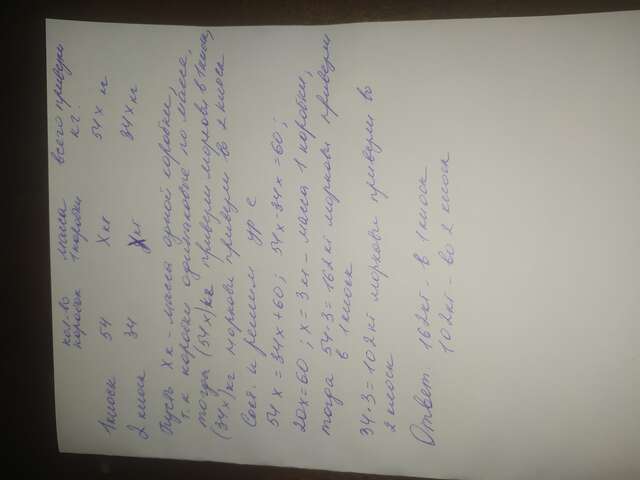 кол-во масса всего привезли
коробок 1 коробки кг.
1 киоск 54 X кг 54 X кг
2 киоск 34 X кг 34 X кг
Пусть X к - масса одной коробки,
т.к коробки одинаковые по массе,
тогда (54x) кг привезли моркови в 1 киоск,
(34x) кг моркови привезли во 2 киоск
Сост. и решим ур е
54x = 34x + 60; 54x - 34x = 60;
20x = 60; x = 3 кг - масса 1 коробки,
тогда 54·3 = 162 кг моркови привезли
в 1 киоск
34·3 = 102 кг моркови привезли во
2 киоск
Ответ 162 кг - в 1 киоск
102 кг - во 2 киоск